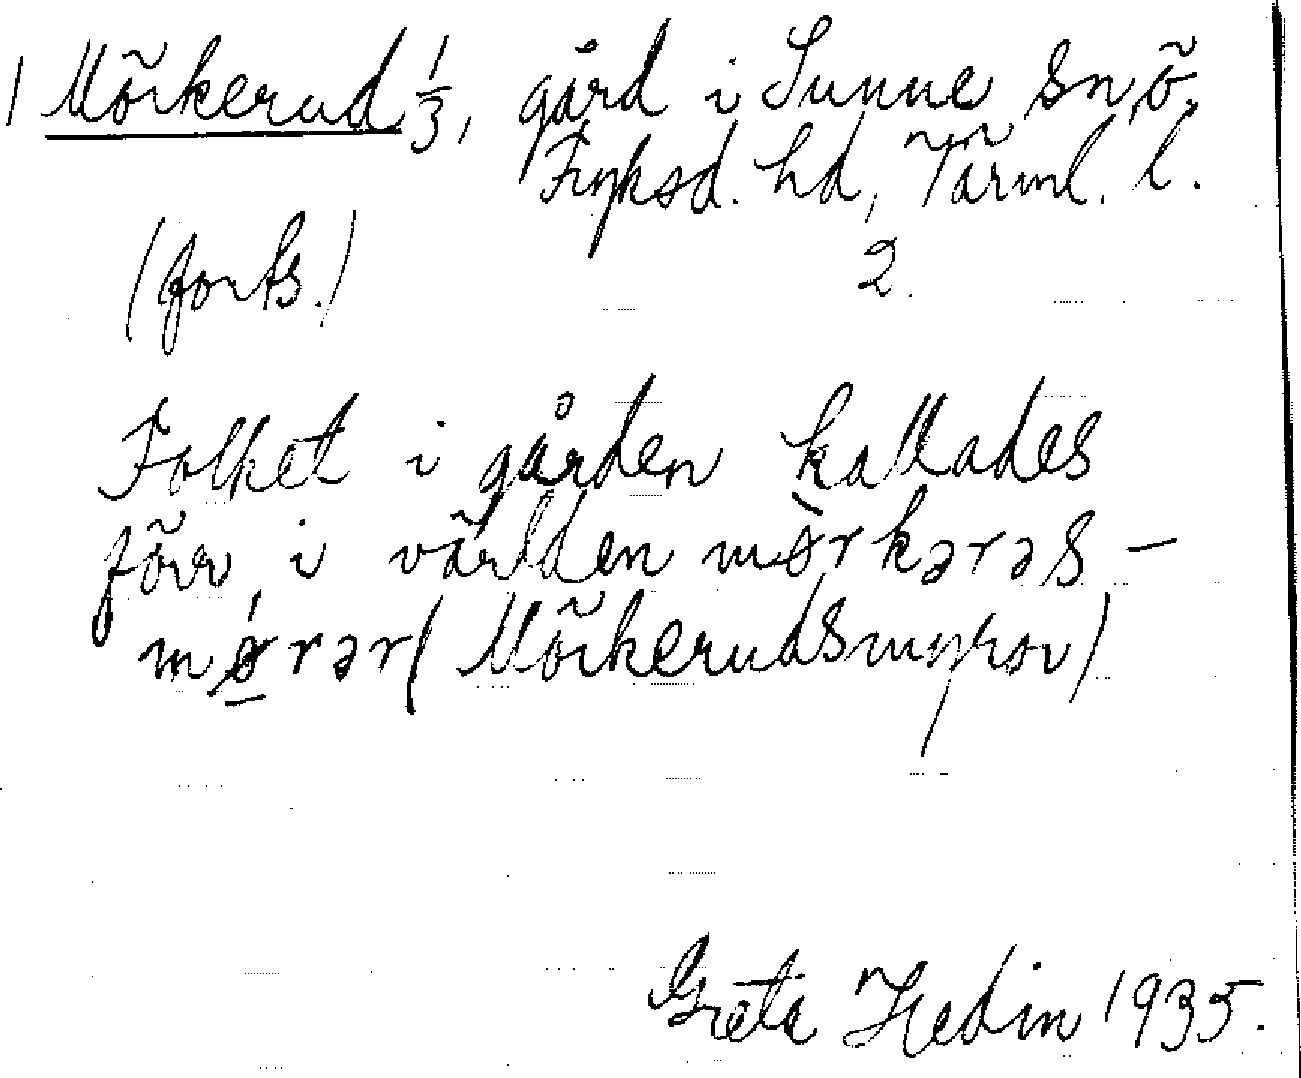 1 Mörkerud 1/3, gård i Sunne sn, ö.
Fryksd. hd, Värml. l.
(forts.) 2.
Folket i gården kallades
förr i världen mørkərəs-
mørər (Mörkerudsmyror)
Greta Hedin 1935.